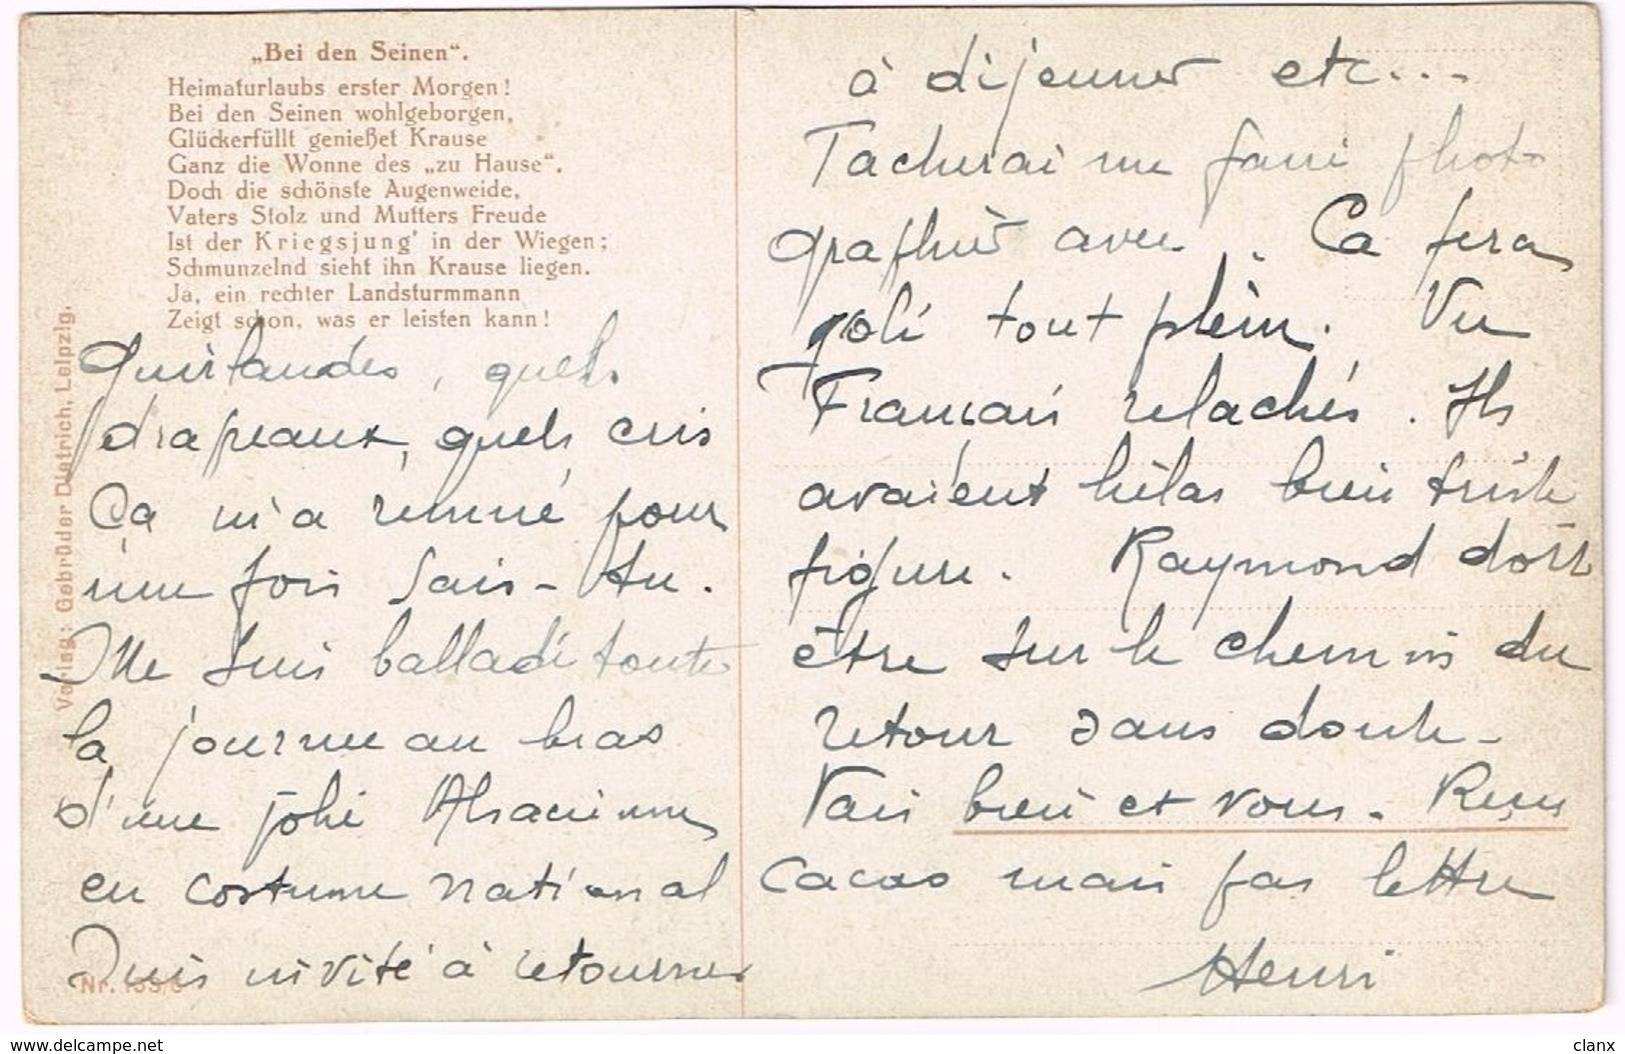 „Bei den Seinen“.
Heimaturlaubs erster Morgen!
Bei den Seinen wohlgeborgen,
Glückerfüllt genießet Krause
Ganz die Wonne des „zu Hause“.
Doch die schönste Augenweide,
Vaters Stolz und Mutters Freude
Ist der Kriegsjung' in der Wiegen;
Schmunzelnd sieht ihn Krause liegen.
Ja, ein rechter Landsturmmann
Zeigt schon, was er leisten kann!
Verlag: Gebrüder Dietrich, Leipzig.
Nr.
guirlandes, quels
drapeaux, quels cris
Ça m'a remué pour
une fois sais-tu.
Me suis balladé toute
la journée au bras
d'une jolie Alsacienne
en costume national
Suis invité à retourner
à déjeuner etc...
Tacherai me faire photo
graphier avec. Ca fera
joli tout plein. Vu
Français relachés. Ils
avaient hélas bien triste
figure. Raymond doit
être sur le chemin du
retour sans doute.
Vais bien et vous. Reçu
cacao mais pas lettre
Henri
delcampe.net
clanx